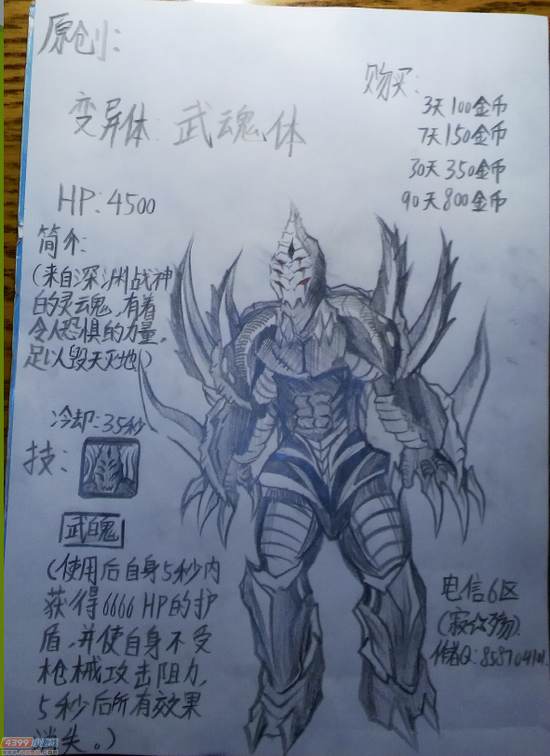 原创:
购买:
3天100金币
7天150金币
30天350金币
90天800金币
变异体:武魂体
HP:4500
简介:
(来自深渊战神
的灵魂,有着
令人恐惧的力量,
足以毁天灭地)
冷却:35秒
技:
武魂
(使用后自身5秒内
获得6666HP的护
盾,并使自身不受
枪械攻击阻力,
5秒后所有效果
消失。)
电信6区
作者Q:
4399